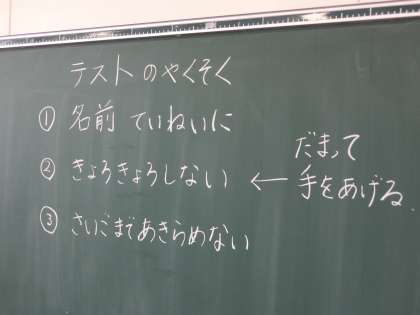 テストのやくそく
① 名前 ていねいに
② きょろきょろしない ← だまって
手をあげる
③ さいごまであきらめない